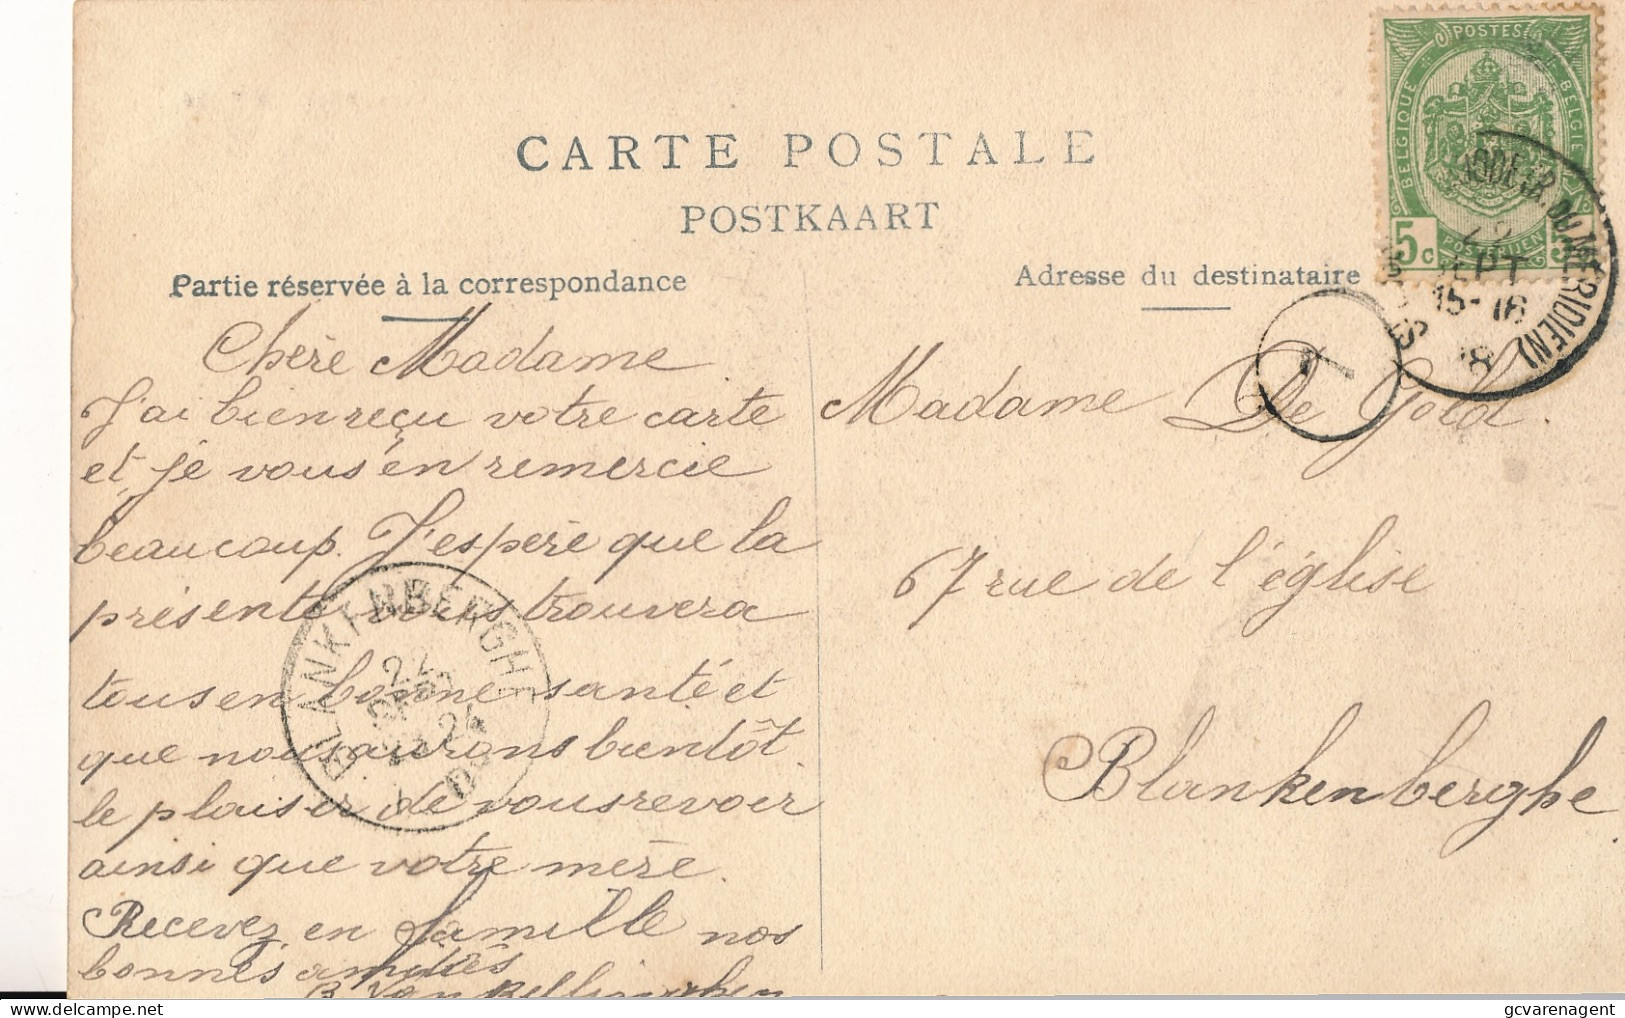 CARTE POSTALE
POSTKAART
Partie réservée à la correspondance
Adresse du destinataire
POSTES
BELGIQUE
BELGIE
5c
POSTERIJEN
SEPT
15-16
DU MERIDIEN)
Chère Madame
J'ai bien reçu votre carte
et je vous en remercie
beaucoup. J'espère que la
présente vous trouvera
tous en bonne santé et
que nous aurons bientôt
le plaisir de vous revoir
ainsi que votre mère.
Recevez en famille nos
bonnes amitiés
B. Van
Madame De Gold.
67 rue de l'église
Blankenberghe
BLANKENBERGHE
gcvarenagent